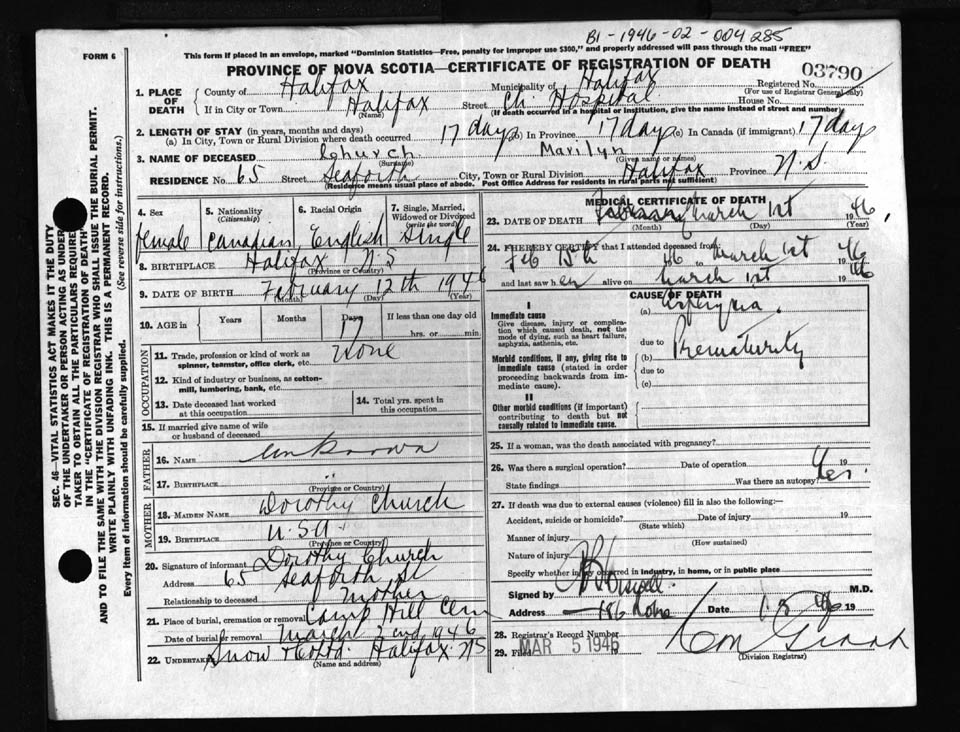 BI-1946-02-004285
FORM 6
This form if placed in an envelope, marked "Dominion Statistics—Free, penalty for improper use $300," and properly addressed will pass through the mail "FREE"
PROVINCE OF NOVA SCOTIA—CERTIFICATE OF REGISTRATION OF DEATH
03790
1. PLACE OF DEATH
County of Halifax Municipality of Halifax Registered No.
(For use of Registrar General only)
If in City or Town Halifax Street Ch. Hospital House No.
(Name) (If death occurred in a hospital or institution, give the name instead of street and number)
2. LENGTH OF STAY (in years, months and days)
(a) In City, Town or Rural Division where death occurred 17 days (b) In Province 17 days (c) In Canada (if immigrant) 17 days
3. NAME OF DECEASED Church Marilyn
(Surname) (Given name or names)
RESIDENCE No. 65 Street Seaforth City, Town or Rural Division Halifax Province N.S
(Residence means usual place of abode. Post Office Address for residents in rural parts not sufficient)
4. Sex female
5. Nationality (Citizenship) Canadian
6. Racial Origin English
7. Single, Married, Widowed or Divorced (write the word) Single
8. BIRTHPLACE Halifax N.S
(Province or Country)
9. DATE OF BIRTH February 12th 1946
(Month) (Day) (Year)
10. AGE in Years Months Days 17 If less than one day old
hrs. or min.
OCCUPATION
11. Trade, profession or kind of work as spinner, teamster, office clerk, etc. None
12. Kind of industry or business, as cotton-mill, lumbering, bank, etc.
13. Date deceased last worked at this occupation
14. Total yrs. spent in this occupation
15. If married give name of wife or husband of deceased
FATHER
16. NAME Unknown
17. BIRTHPLACE
(Province or Country)
MOTHER
18. MAIDEN NAME Dorothy Church
19. BIRTHPLACE U.S.A.
(Province or Country)
20. Signature of informant Dorothy Church
Address 65 Seaforth St
Relationship to deceased mother
21. Place of burial, cremation or removal Camp Hill Cem
Date of burial or removal March 2nd 1946
22. Undertaker Snow & Co Ltd. Halifax NS
(Name and address)
MEDICAL CERTIFICATE OF DEATH
23. DATE OF DEATH February March 1st 1946
(Month) (Day)
24. I HEREBY CERTIFY that I attended deceased from:
Feb 15th 46 to March 1st 1946
and last saw her alive on March 1st 1946
CAUSE OF DEATH
I
Immediate cause
Give disease, injury or complication which caused death, not the mode of dying, such as heart failure, asphyxia, asthenia, etc.
(a)
due to
Morbid conditions, if any, giving rise to immediate cause (stated in order proceeding backwards from immediate cause).
(b) Prematurity
due to
(c)
II
Other morbid conditions (if important) contributing to death but not causally related to immediate cause.
25. If a woman, was the death associated with pregnancy?
26. Was there a surgical operation? Date of operation 19
State findings Was there an autopsy? Yes
27. If death was due to external causes (violence) fill in also the following:—
Accident, suicide or homicide? Date of injury 19
(State which)
Manner of injury
(How sustained)
Nature of injury
Specify whether injury occurred in industry, in home, or in public place
Signed by M.D.
Address 186 Date 19
28. Registrar's Record Number
29. Filed MAR 5 1946
(Division Registrar)
SEC. 46—VITAL STATISTICS ACT MAKES IT THE DUTY
OF THE UNDERTAKER OR PERSON ACTING AS UNDER-
TAKER TO OBTAIN ALL THE PARTICULARS REQUIRED
IN THE "CERTIFICATE OF REGISTRATION OF DEATH"
AND TO FILE THE SAME WITH THE DIVISION REGISTRAR WHO SHALL ISSUE THE BURIAL PERMIT.
WRITE PLAINLY WITH UNFADING INK. THIS IS A PERMANENT RECORD.
Every item of information should be carefully supplied. (See reverse side for instructions.)